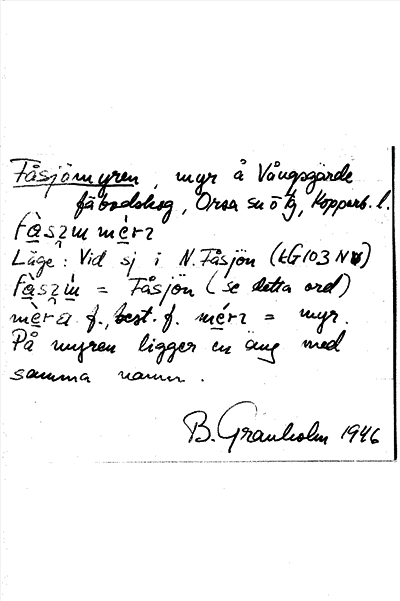 Fåsjömyren, myr å Vångsgärde
fäbodskog, Orsa sn ö tg, Kopparb. l.
Läge: Vid sj i N. Fåsjön (LG103 NV)
= Fåsjön (se detta ord)
f., best. f. = myr.
På myren ligger en äng med
samma namn.
B. Granholm 1946